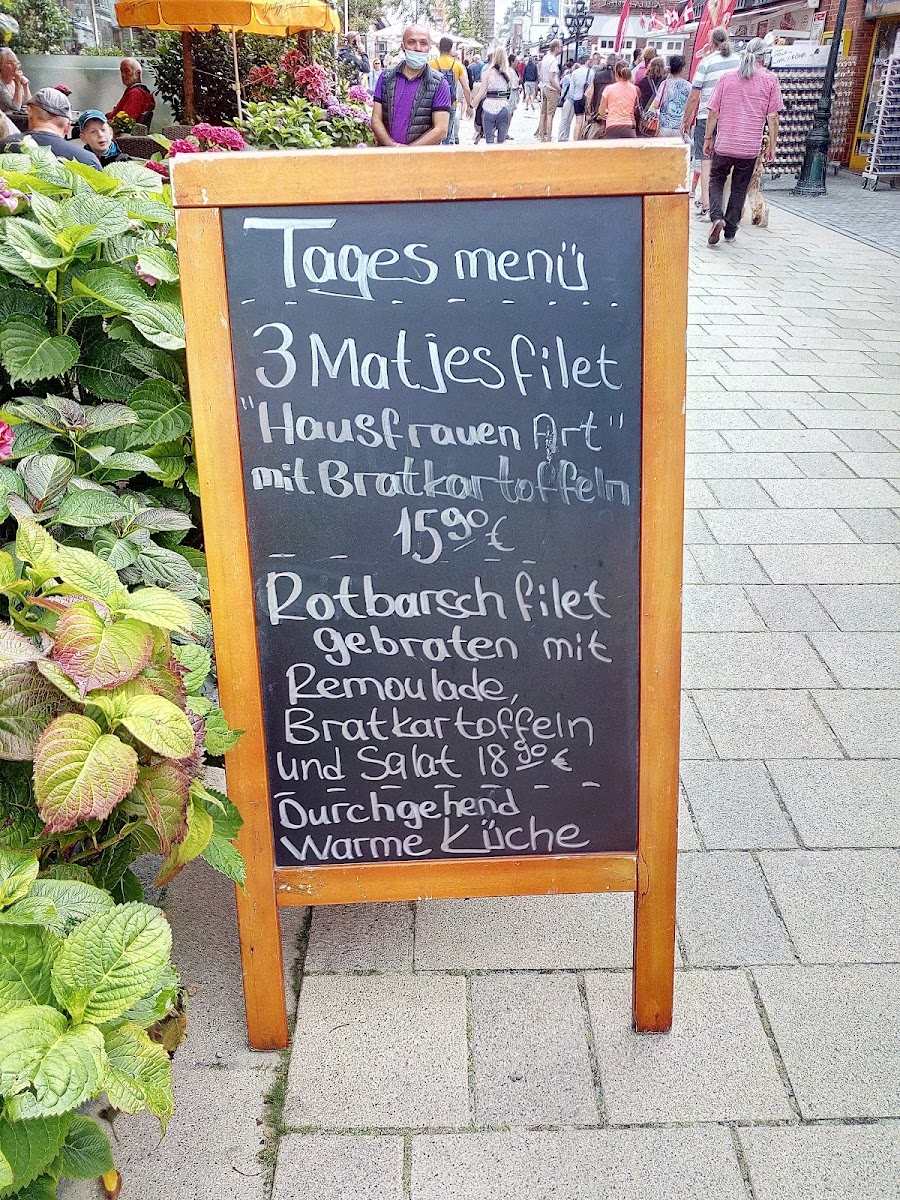 Tages menü
3 Matjesfilet
"Hausfrauen Art"
mit Bratkartoffeln
15,90 €
Rotbarschfilet
gebraten mit
Remoulade,
Bratkartoffeln
und Salat 18,90 €
Durchgehend
Warme Küche